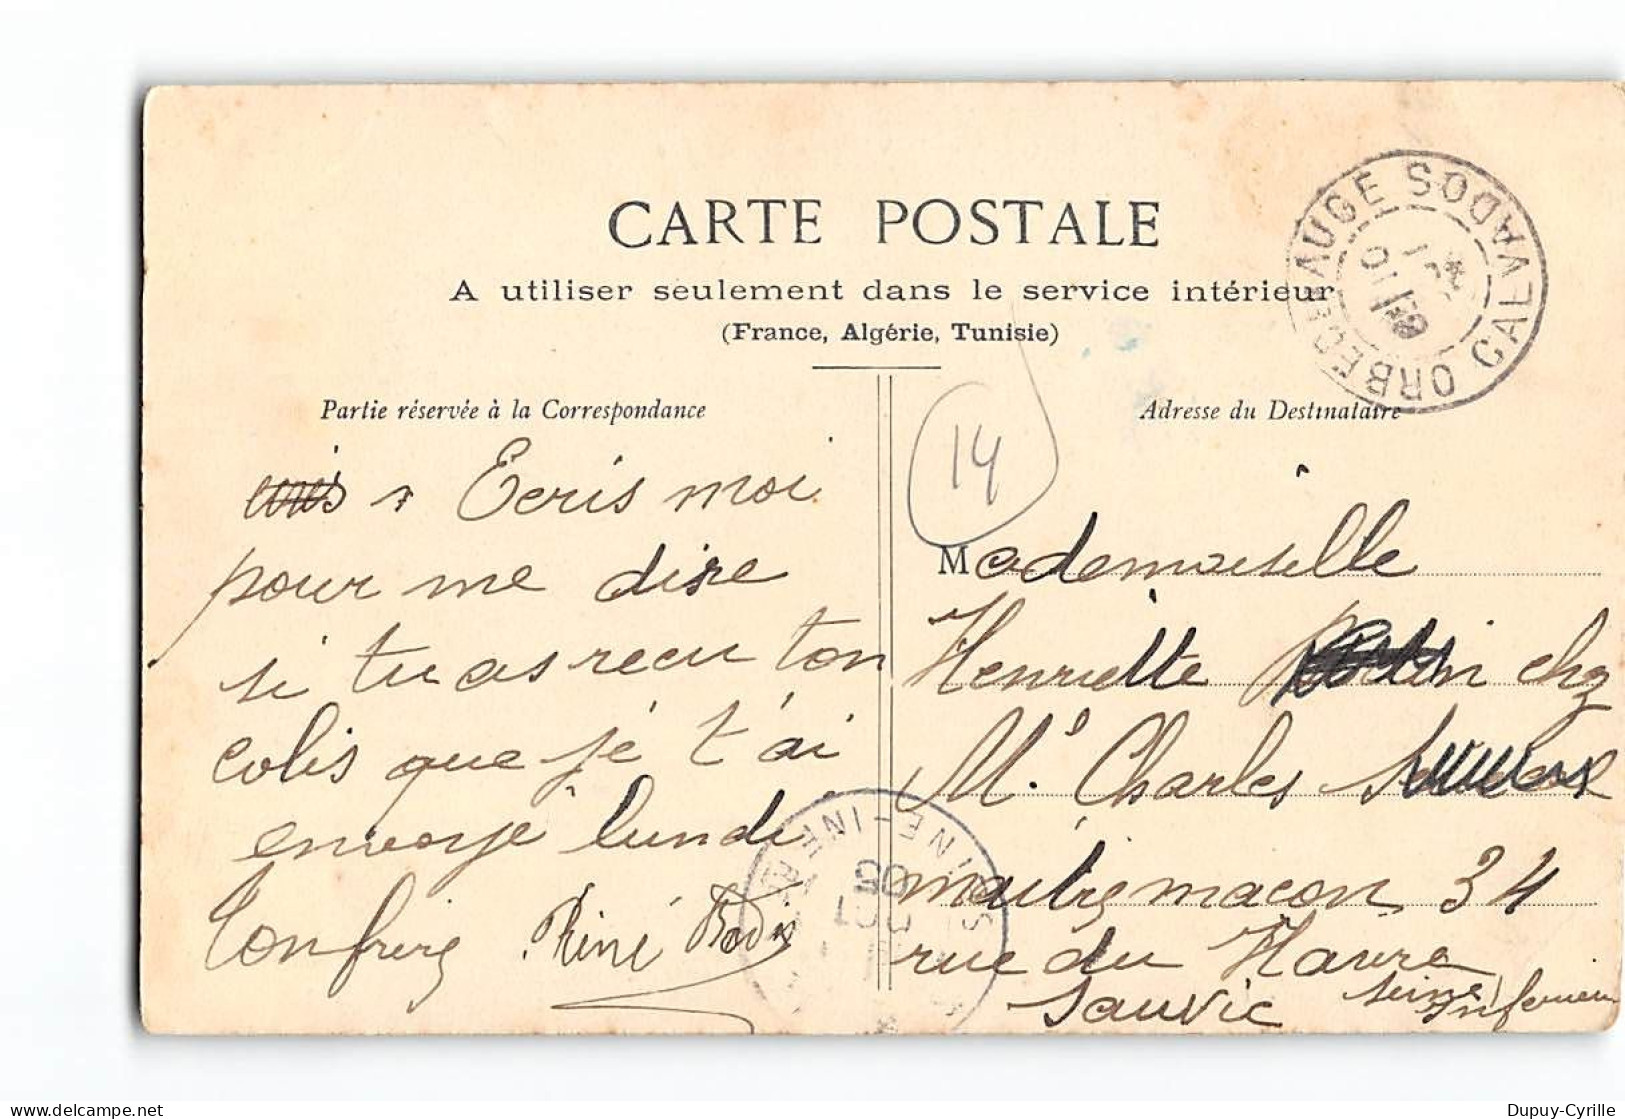 CARTE POSTALE
A utiliser seulement dans le service intérieur
(France, Algérie, Tunisie)
Partie réservée à la Correspondance
Ecris moi
pour me dire
si tu as reçu ton
colis que je t'ai
envoyé lundi
Ton frère René
Adresse du Destinataire
14
Mademoiselle
Henriette chez
Mr Charles
maitre macon 34
rue du Havre
Sanvic Seine Inférieure
ORBEC-EN-AUGE CALVADOS
SEINE-INFRE
OCT 05
Dupuy-Cyrille